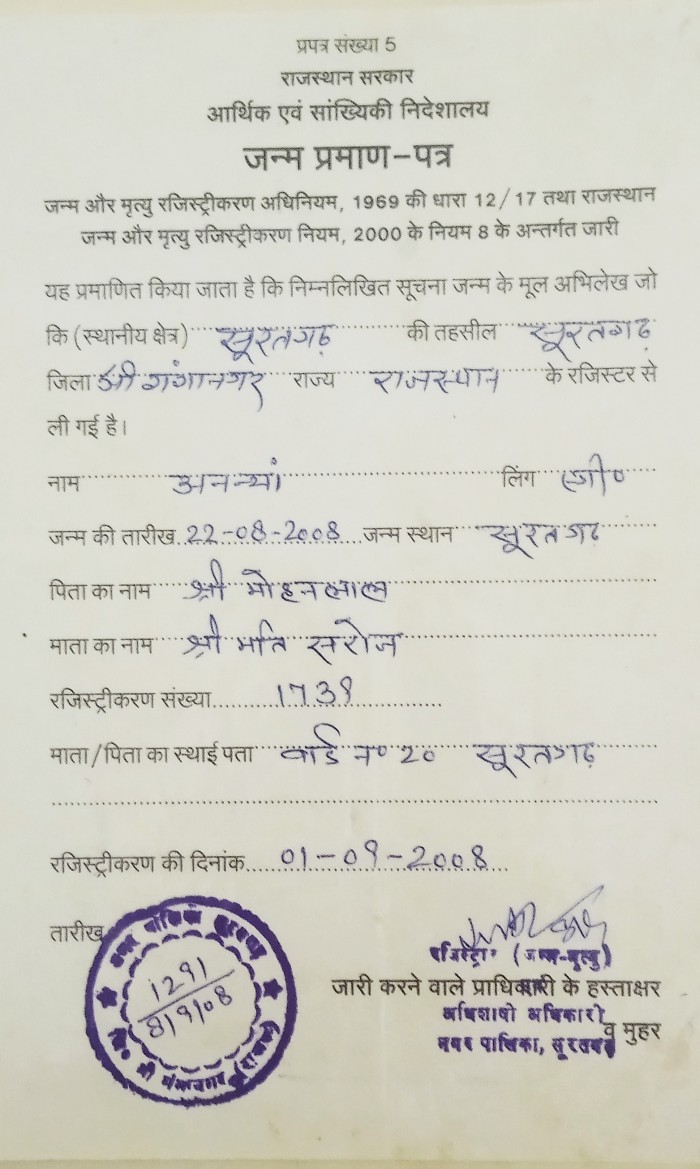 प्रपत्र संख्या 5
राजस्थान सरकार
आर्थिक एवं सांख्यिकी निदेशालय
जन्म प्रमाण-पत्र
जन्म और मृत्यु रजिस्ट्रीकरण अधिनियम, 1969 की धारा 12/17 तथा राजस्थान
जन्म और मृत्यु रजिस्ट्रीकरण नियम, 2000 के नियम 8 के अन्तर्गत जारी
यह प्रमाणित किया जाता है कि निम्नलिखित सूचना जन्म के मूल अभिलेख जो
कि (स्थानीय क्षेत्र) सूरतगढ़ की तहसील सूरतगढ़
जिला श्री गंगानगर राज्य राजस्थान के रजिस्टर से
ली गई है।
नाम अनन्यां लिंग स्त्री०
जन्म की तारीख 22-08-2008 जन्म स्थान सूरतगढ़
पिता का नाम श्री मोहनलाल
माता का नाम श्री मति सरोज
रजिस्ट्रीकरण संख्या 1738
माता/पिता का स्थाई पता वार्ड न० 20 सूरतगढ़
रजिस्ट्रीकरण की दिनांक 01-09-2008
तारीख
नगर पालिका सूरतगढ़
1291
8/9/08
जि० श्री गंगानगर (राज०)
रजिस्ट्रार (जन्म-मृत्यु)
जारी करने वाले प्राधिकारी के हस्ताक्षर
अधिशाषी अधिकारी
व मुहर
नगर पालिका, सूरतगढ़